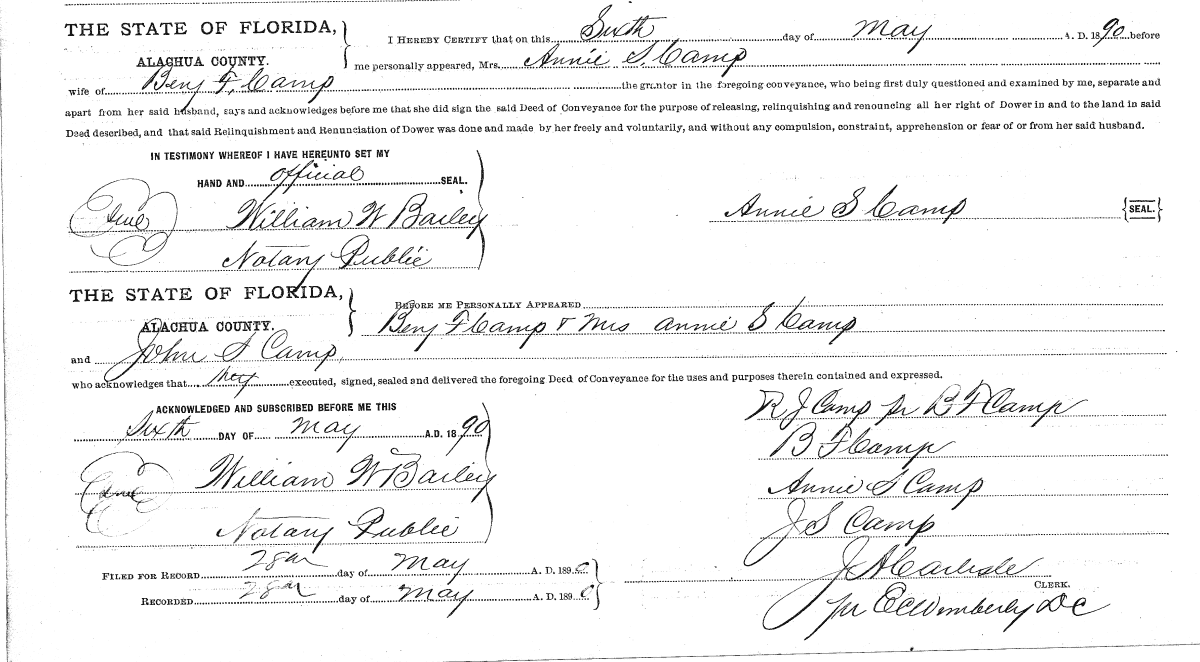 THE STATE OF FLORIDA,
ALACHUA COUNTY.
I HEREBY CERTIFY that on this Sixth day of May A. D. 1890 before
me personally appeared, Mrs. Annie S. Camp
wife of Benj F. Camp the grantor in the foregoing conveyance, who being first duly questioned and examined by me, separate and
apart from her said husband, says and acknowledges before me that she did sign the said Deed of Conveyance for the purpose of releasing, relinquishing and renouncing all her right of Dower in and to the land in said
Deed described, and that said Relinquishment and Renunciation of Dower was done and made by her freely and voluntarily, and without any compulsion, constraint, apprehension or fear of or from her said husband.
IN TESTIMONY WHEREOF I HAVE HEREUNTO SET MY
HAND AND official SEAL.
William W Bailey
Notary Public
Annie S Camp {SEAL.}
THE STATE OF FLORIDA,
ALACHUA COUNTY.
BEFORE ME PERSONALLY APPEARED
Benj F Camp & Mrs Annie S Camp
and John S Camp
who acknowledges that they executed, signed, sealed and delivered the foregoing Deed of Conveyance for the uses and purposes therein contained and expressed.
ACKNOWLEDGED AND SUBSCRIBED BEFORE ME THIS
Sixth DAY OF May A.D. 1890
William W Bailey
Notary Public
R J Camp pr B F Camp
B F Camp
Annie S Camp
J S Camp
FILED FOR RECORD 28th day of May A. D. 1890
RECORDED 28th day of May A. D. 1890
J A Carlisle
CLERK.
pr E C Wimberly DC